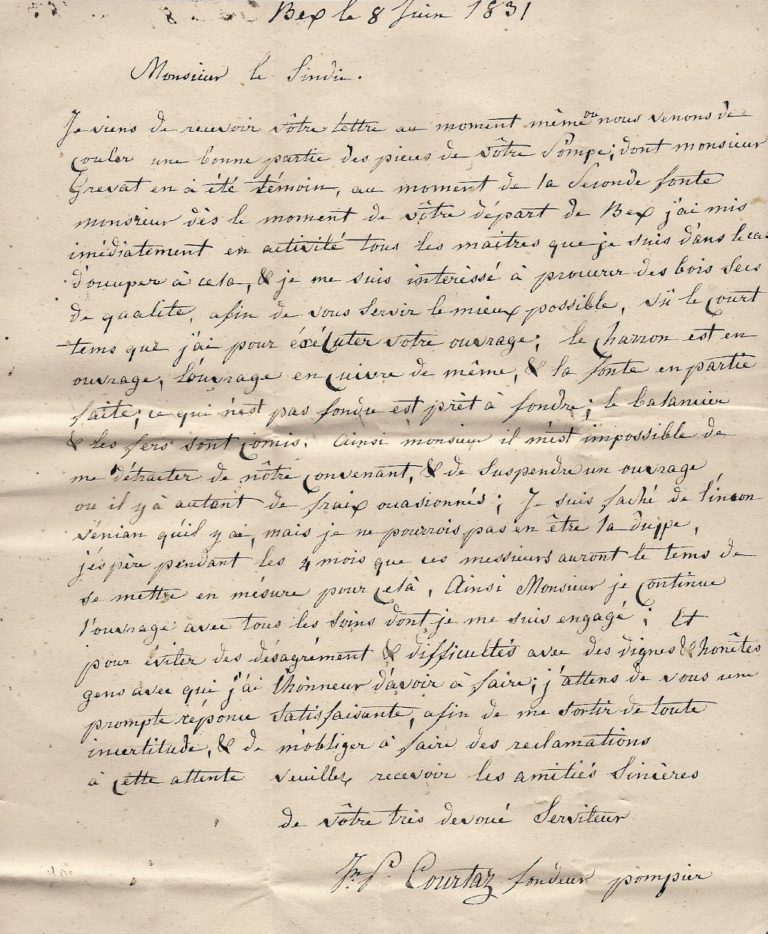 Bex le 8 Juin 1831
Monsieur le Sindic.
Je viens de recevoir vôtre lettre au moment même ou nous venons de
couler une bonne partie des pieces de vôtre Pompe; dont monsieur
Grevat en à été témoin, au moment de la seconde fonte
monsieur dès le moment de vôtre départ de Bex j'ai mis
imédiatement en activité tous les maitres que je suis d'ans le cas
d'ocuper à cela, & je me suis interessé à procurer des bois secs
de qualité, afin de vous servir le mieux possible, vü le court
tems que j'ai pour éxécuter votre ouvrage; le charron est en
ouvrage, l'ouvrage en cuivre de même, & la fonte en partie
faite; ce qui n'est pas fondu est prèt à fondre; le balancier
& les fers sont comis. Ainsi monsieur il m'est impossible de
me détracter de nôtre convenant, & de suspendre un ouvrage
ou il y à autant de fraix ocasionnés; Je suis faché de l'incon
vénian qu'il y ai, mais je ne pourrois pas en être la duppe,
j'espère pendant les 4 mois que ces messieurs auront le tems de
se mettre en mésure pour celà, Ainsi Monsieur je continue
l'ouvrage avec tous les soins dont je me suis engagé; Et
pour éviter des désagrément & difficultés avec des dignes & honêtes
gens avec qui j'ai l'honneur d'avoir à faire; j'attens de vous une
prompte réponce satisfaisante, afin de me sortir de toute
incertitude, & de m'obliger à faire des reclamations
à cette attente veuillez recevoir les amitiés sincères
de vôtre très devoué serviteur
Jn P. Courtaz fondeur pompier